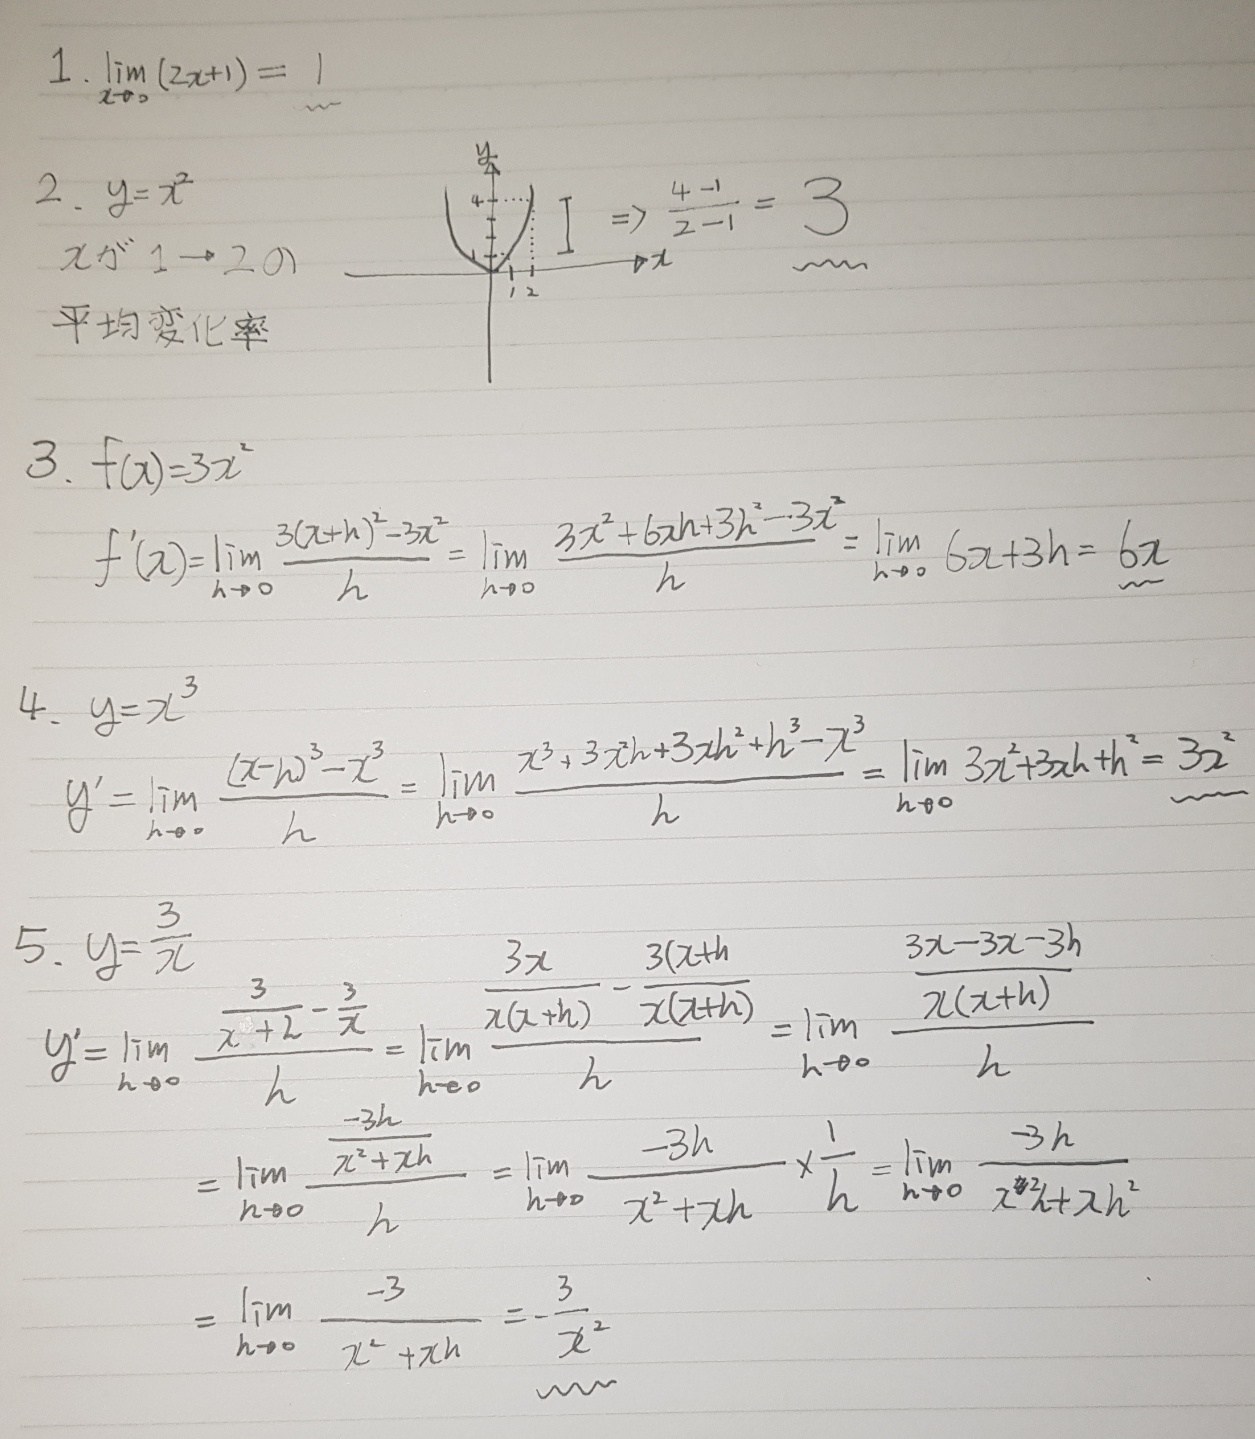 1. lim_{x→0} (2x+1) = 1
2. y=x²
xが 1→2の
平均変化率
y
4
1
1 2
x
=> (4-1)/(2-1) = 3
3. f(x)=3x²
f'(x)= lim_{h→0} (3(x+h)²-3x²)/h = lim_{h→0} (3x²+6xh+3h²-3x²)/h = lim_{h→0} 6x+3h = 6x
4. y=x³
y'= lim_{h→0} ((x-h)³-x³)/h = lim_{h→0} (x³+3x²h+3xh²+h³-x³)/h = lim_{h→0} 3x²+3xh+h² = 3x²
5. y= 3/x
y'= lim_{h→0} (3/(x+h) - 3/x)/h = lim_{h→0} (3x/(x(x+h)) - 3(x+h/(x(x+h)))/h = lim_{h→0} ((3x-3x-3h)/(x(x+h)))/h
= lim_{h→0} (-3h/(x²+xh))/h = lim_{h→0} -3h/(x²+xh) × 1/h = lim_{h→0} -3h/(x²h+xh²)
= lim_{h→0} -3/(x²+xh) = -3/x²